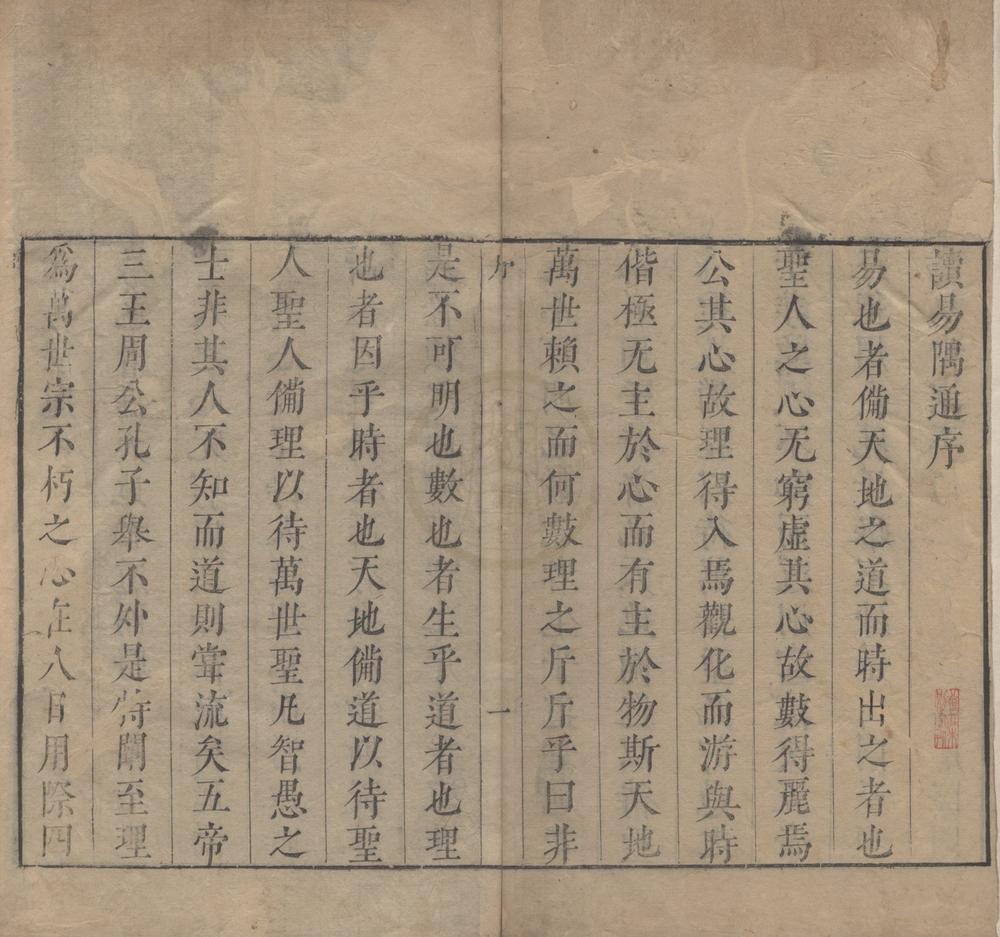 讀易隅通序
易也者備天地之道而時出之者也
聖人之心无窮虛其心故數得麗焉
公其心故理得入焉觀化而游與時
偕極无主於心而有主於物斯天地
萬世賴之而何數理之斤斤乎曰非
序 一
是不可明也數也者生乎道者也理
也者因乎時者也天地備道以待聖
人聖人備理以待萬世聖凡智愚之
士非其人不知而道則常流矣五帝
三王周公孔子舉不外是特闡至理
爲萬世宗不朽之心在人日用際四